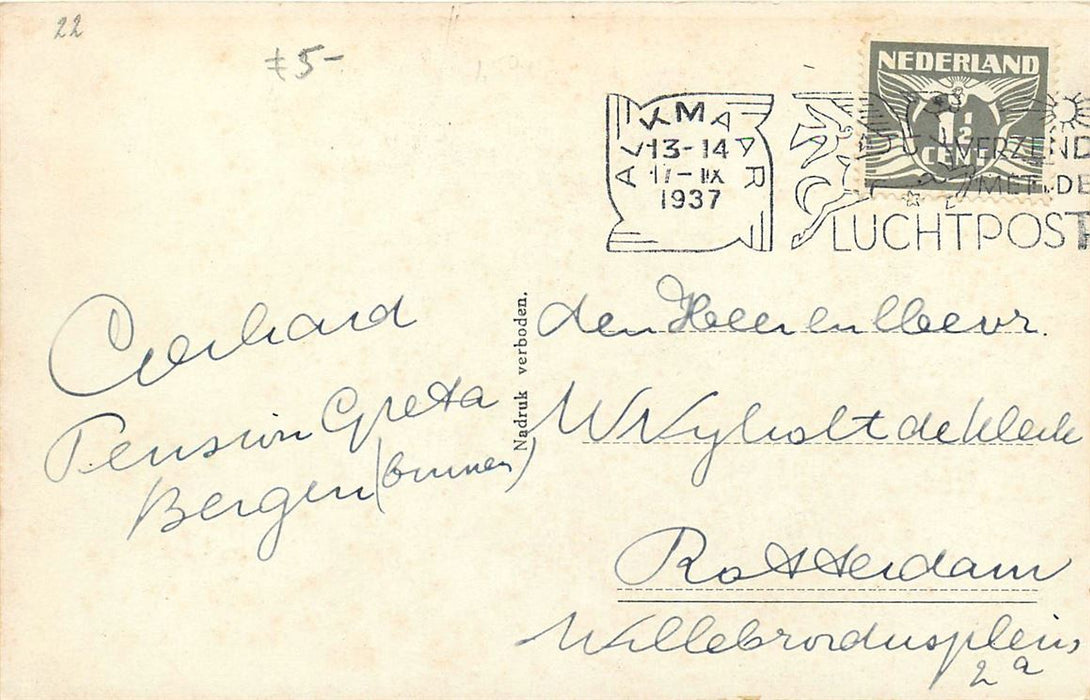 22
5-
NEDERLAND
1½
CENT
ALKMAAR
13-14
17-IX
1937
VERZEND
MET DE
LUCHTPOST
Gerhard
Pension Greta
Bergen (binnen)
Nadruk verboden.
den Heer en Mevr.
W Nyholt de Klerk
Rotterdam
Willebrordusplein
2a